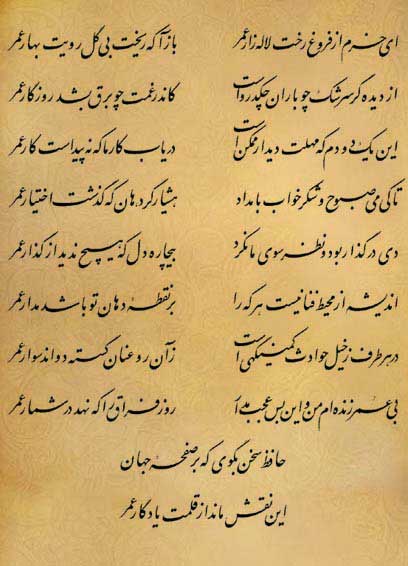 ای خرم از فروغ رخت لاله زار عمر بازآ که ریخت بی گل رویت بهار عمر
از دیده گر سرشک چو باران چکد رواست کاندر غمت چو برق بشد روزگار عمر
این یک دو دم که مهلت دیدار ممکن است دریاب کار ما که نه پیداست کار عمر
تا کی می صبوح و شکر خواب بامداد هشیار گرد هان که گذشت اختیار عمر
دی در گذار بود و نظر سوی ما نکرد بیچاره دل که هیچ ندید از گذار عمر
اندیشه از محیط فنا نیست هر که را بر نقطه دهان تو باشد مدار عمر
در هر طرف ز خیل حوادث کمینگهی است زان رو عنان گسسته دواند سوار عمر
بی عمر زنده ام من و این بس عجب مدار روز فراق را که نهد در شمار عمر
حافظ سخن بگوی که بر صفحه جهان
این نقش ماند از قلمت یادگار عمر